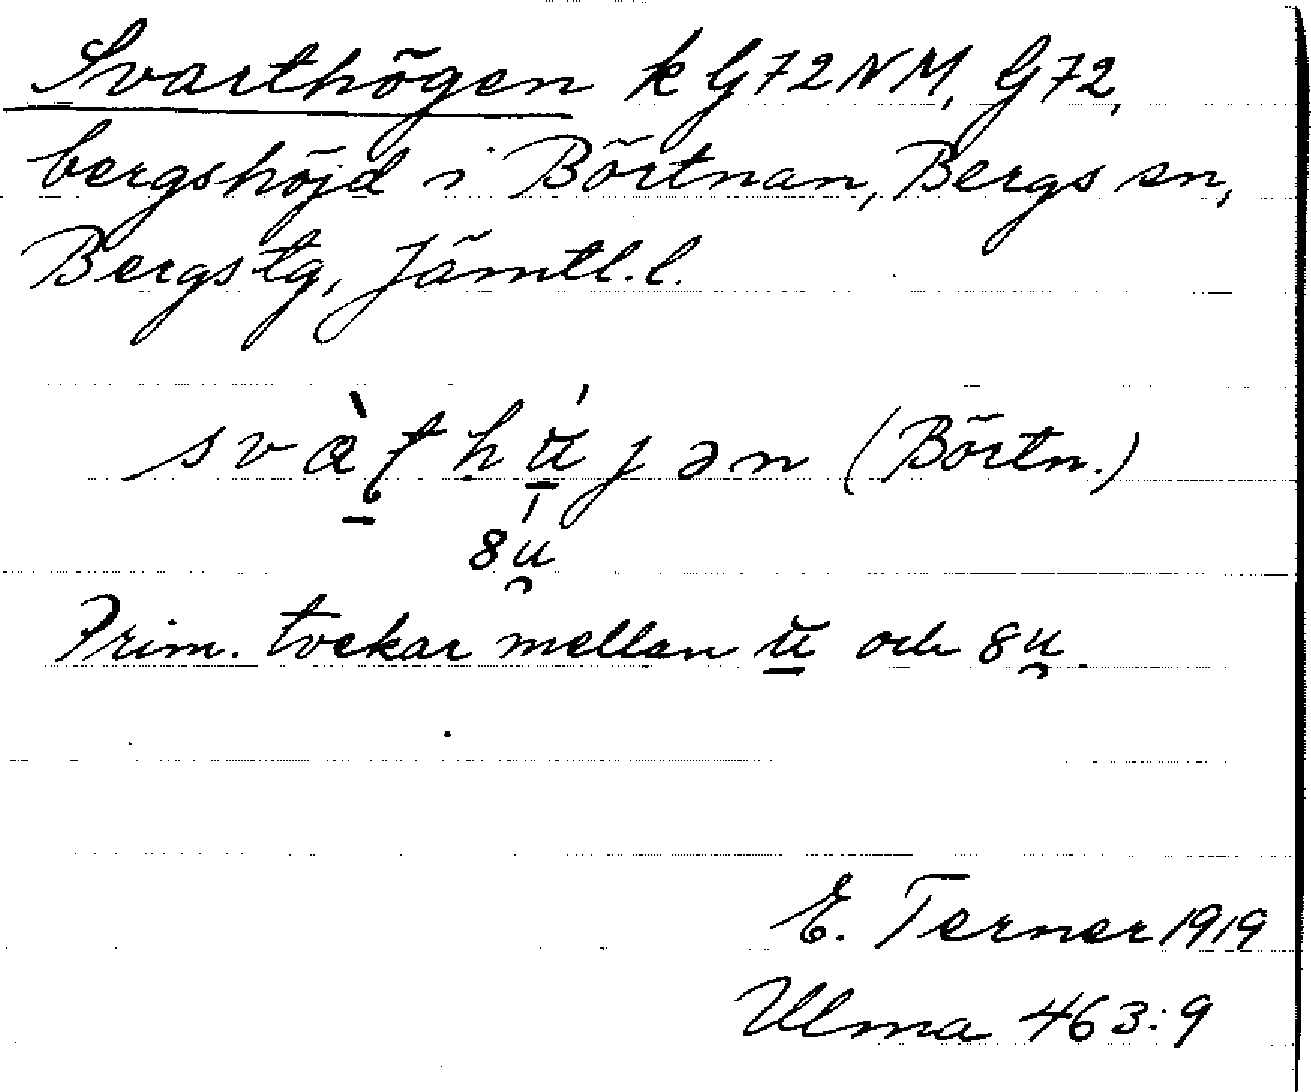 Svarthögen k G72NM, G72,
bergshöjd i Börtnan, Bergs sn,
Bergs tg, Jämtl. l.
(Börtn.)
8u̯
Prim. tvekar mellan ū̱ och 8u̯.
E. Terner 1919
Ulma 463:9